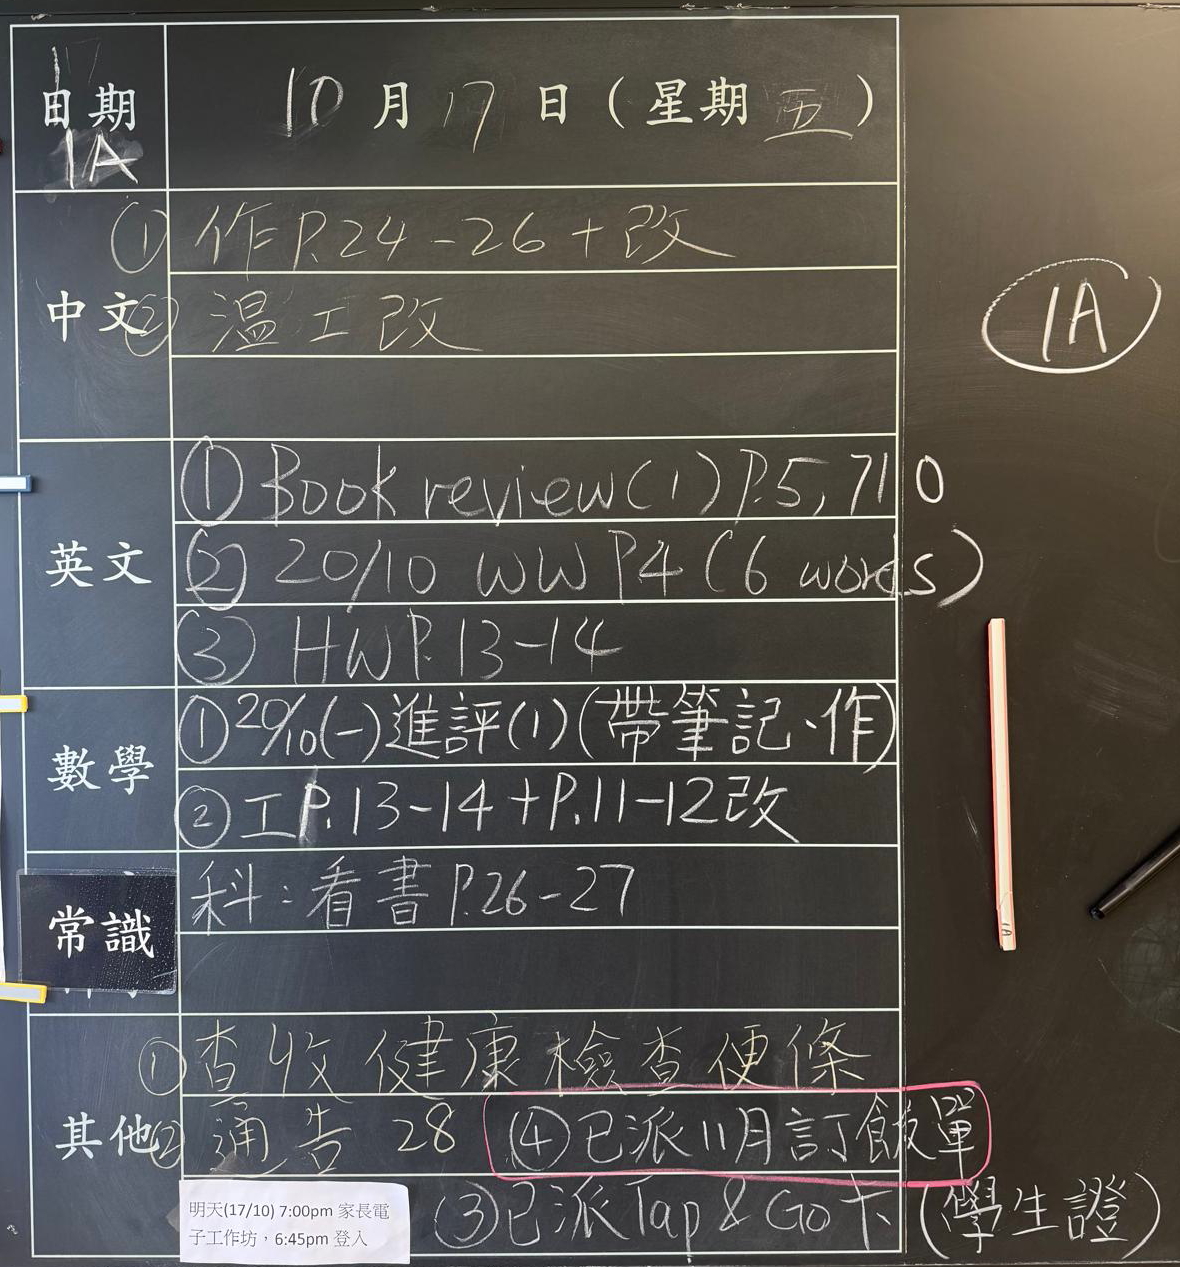 日期 10月17日(星期五)
1A
① 作P.24-26+改
中文② 温工改
1A
① Book review(1) P.5, 7 10
英文 ② 20/10 WW P4 (6 words)
③ HW P.13-14
① 20/10(一)進評(1)(帶筆記、作)
數學
② 工P.13-14+P.11-12改
科:看書P.26-27
常識
① 查收健康檢查便條
其他② 通告 28 ④已派11月訂飯單
明天(17/10) 7:00pm 家長電
子工作坊,6:45pm 登入
③已派Tap & Go卡(學生證)